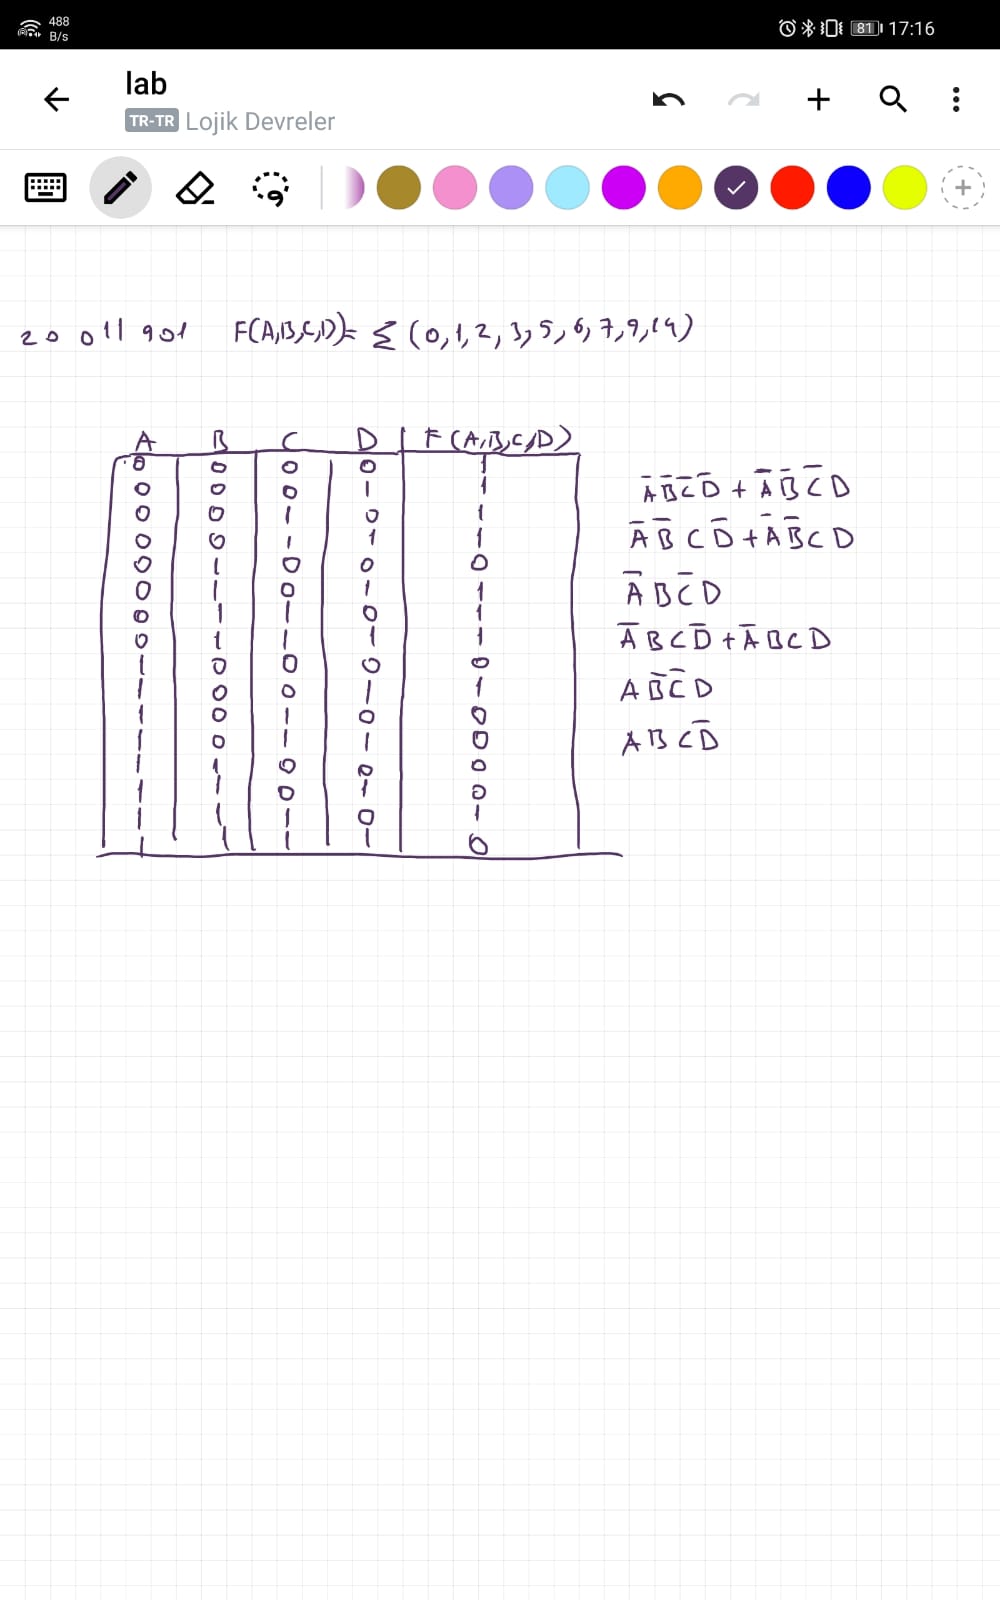 488 B/s 81 17:16
lab
TR-TR Lojik Devreler
20 011 901 F(A,B,C,D)= Σ (0,1,2,3,5,6,7,9,14)
A B C D F(A,B,C,D)
0 0 0 0 1
0 0 0 1 1
0 0 1 0 1
0 0 1 1 1
0 1 0 0 0
0 1 0 1 1
0 1 1 0 1
0 1 1 1 1
1 0 0 0 0
1 0 0 1 1
1 0 1 0 0
1 0 1 1 0
1 1 0 0 0
1 1 0 1 0
1 1 1 0 1
1 1 1 1 0
A̅ B̅ C̅ D̅ + A̅ B̅ C̅ D
A̅ B̅ C D̅ + A̅ B̅ C D
A̅ B C̅ D
A̅ B C D̅ + A̅ B C D
A B̅ C̅ D
A B C D̅